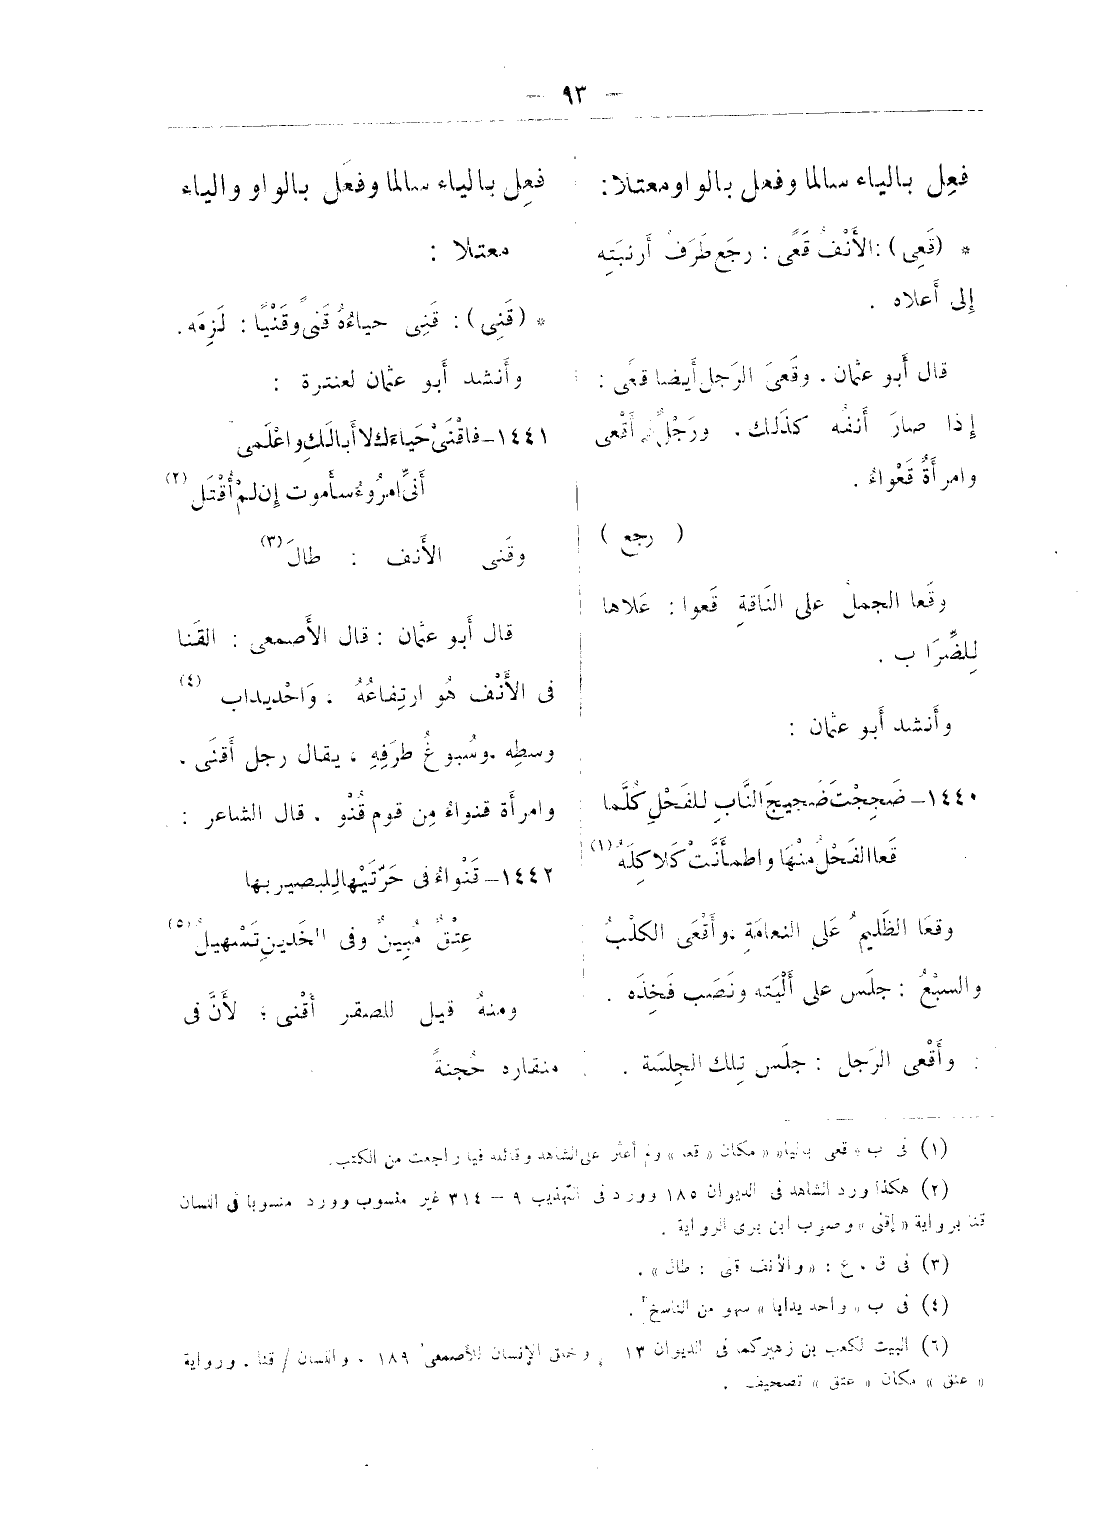 — ٩٣ —
فعِل بالياء سالما وفعل بالواو معتلا :
* (قَعِى) : الأَنْفُ قَعًى : رجَع طَرَفُ أرنبَتِه
إلى أَعلاه .
قال أَبو عثمان . وقَعىَ الرَجل أيضا قعًى :
إذا صارَ أنفُه كذَلك . ورَجُلٌ أَقْعى
وامرأَةٌ قَعْواءُ .
( رجع )
وقَعا الجملُ على النَاقةِ قَعوا : عَلاها
لِلضِّرَاب .
وأَنشد أَبو عثمان :
١٤٤٠ – ضَجِجْتَ ضَجيجَ النَّابِ للفَحْلِ كُلَّما
قَعا الفَحْلُ منْهَا واطمأَنَّتْ كَلاكِلَهُ (١)
وقعَا الظَليمُ عَلى النعامَةِ .وأَقْعَى الكلْبُ
والسبْعُ : جلَس على أَلْيَته ونَصَب فَخِذَه .
وأَقْعى الرَجل : جلَس تِلك الجِلسَة .
فعِل بالياء سالما وفعَل بالواو والياء
معتلا :
* (قَنِى) : قَنِى حياءَهُ قَنىً وقَنْيًا : لَزِمَه .
وأَنشد أَبو عثمان لعنترة :
١٤٤١ – فاقْنَىْ حَياءَك لا أَبالَكِ واعْلَمى
أَنىِّ امرُوءُ سأَموت إن لمْ أُقْتَل (٢)
وقَنى الأَنف : طالَ (٣)
قال أَبو عثمان : قال الأَصمعى : القَنا
فى الأَنْف هُو ارتِفاعُهُ . وَاحْديداب (٤)
وسطِه .وسُبوغُ طرَفِهِ ، يقال رجل أَقنَى .
وامرأَة قنواءُ مِن قوم قُنْو . قال الشاعر :
١٤٤٢ – قَنْواءُ فى حَرّتَيْها لِلبصير بها
عِتْقٌ مُبِينٌ وفى الخَدينِ تَسْهيلُ (٥)
ومنهُ قيل للصقر أقْنى ؛ لأَنَّ فى
منقاره حُجنةً
(١) فى ب « قعى بالياء » مكان « قعا » ولم أعثر على الشاهد وقائله فيما راجعت من الكتب.
(٢) هكذا ورد الشاهد فى الديوان ١٨٥ وورد فى التهذيب ٩ – ٣١٤ غير منسوب وورد منسوبا فى اللسان
قنا برواية « إقنى » وصوب ابن برى الرواية .
(٣) فى ق . ع : « والأنف قنى : طال » .
(٤) فى ب « واحديدابا » سهو من الناسخ .
(٦) البيت لكعب بن زهير كما فى الديوان ١٣ ، وخلق الإنسان للأصمعى ١٨٩ . واللسان / قنا . ورواية
« عنق » مكان « عتق » تصحيف .